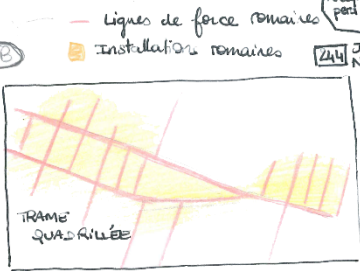 Lignes de force romaines
B
Installation romaines
244
TRAME
QUADRILLÉE